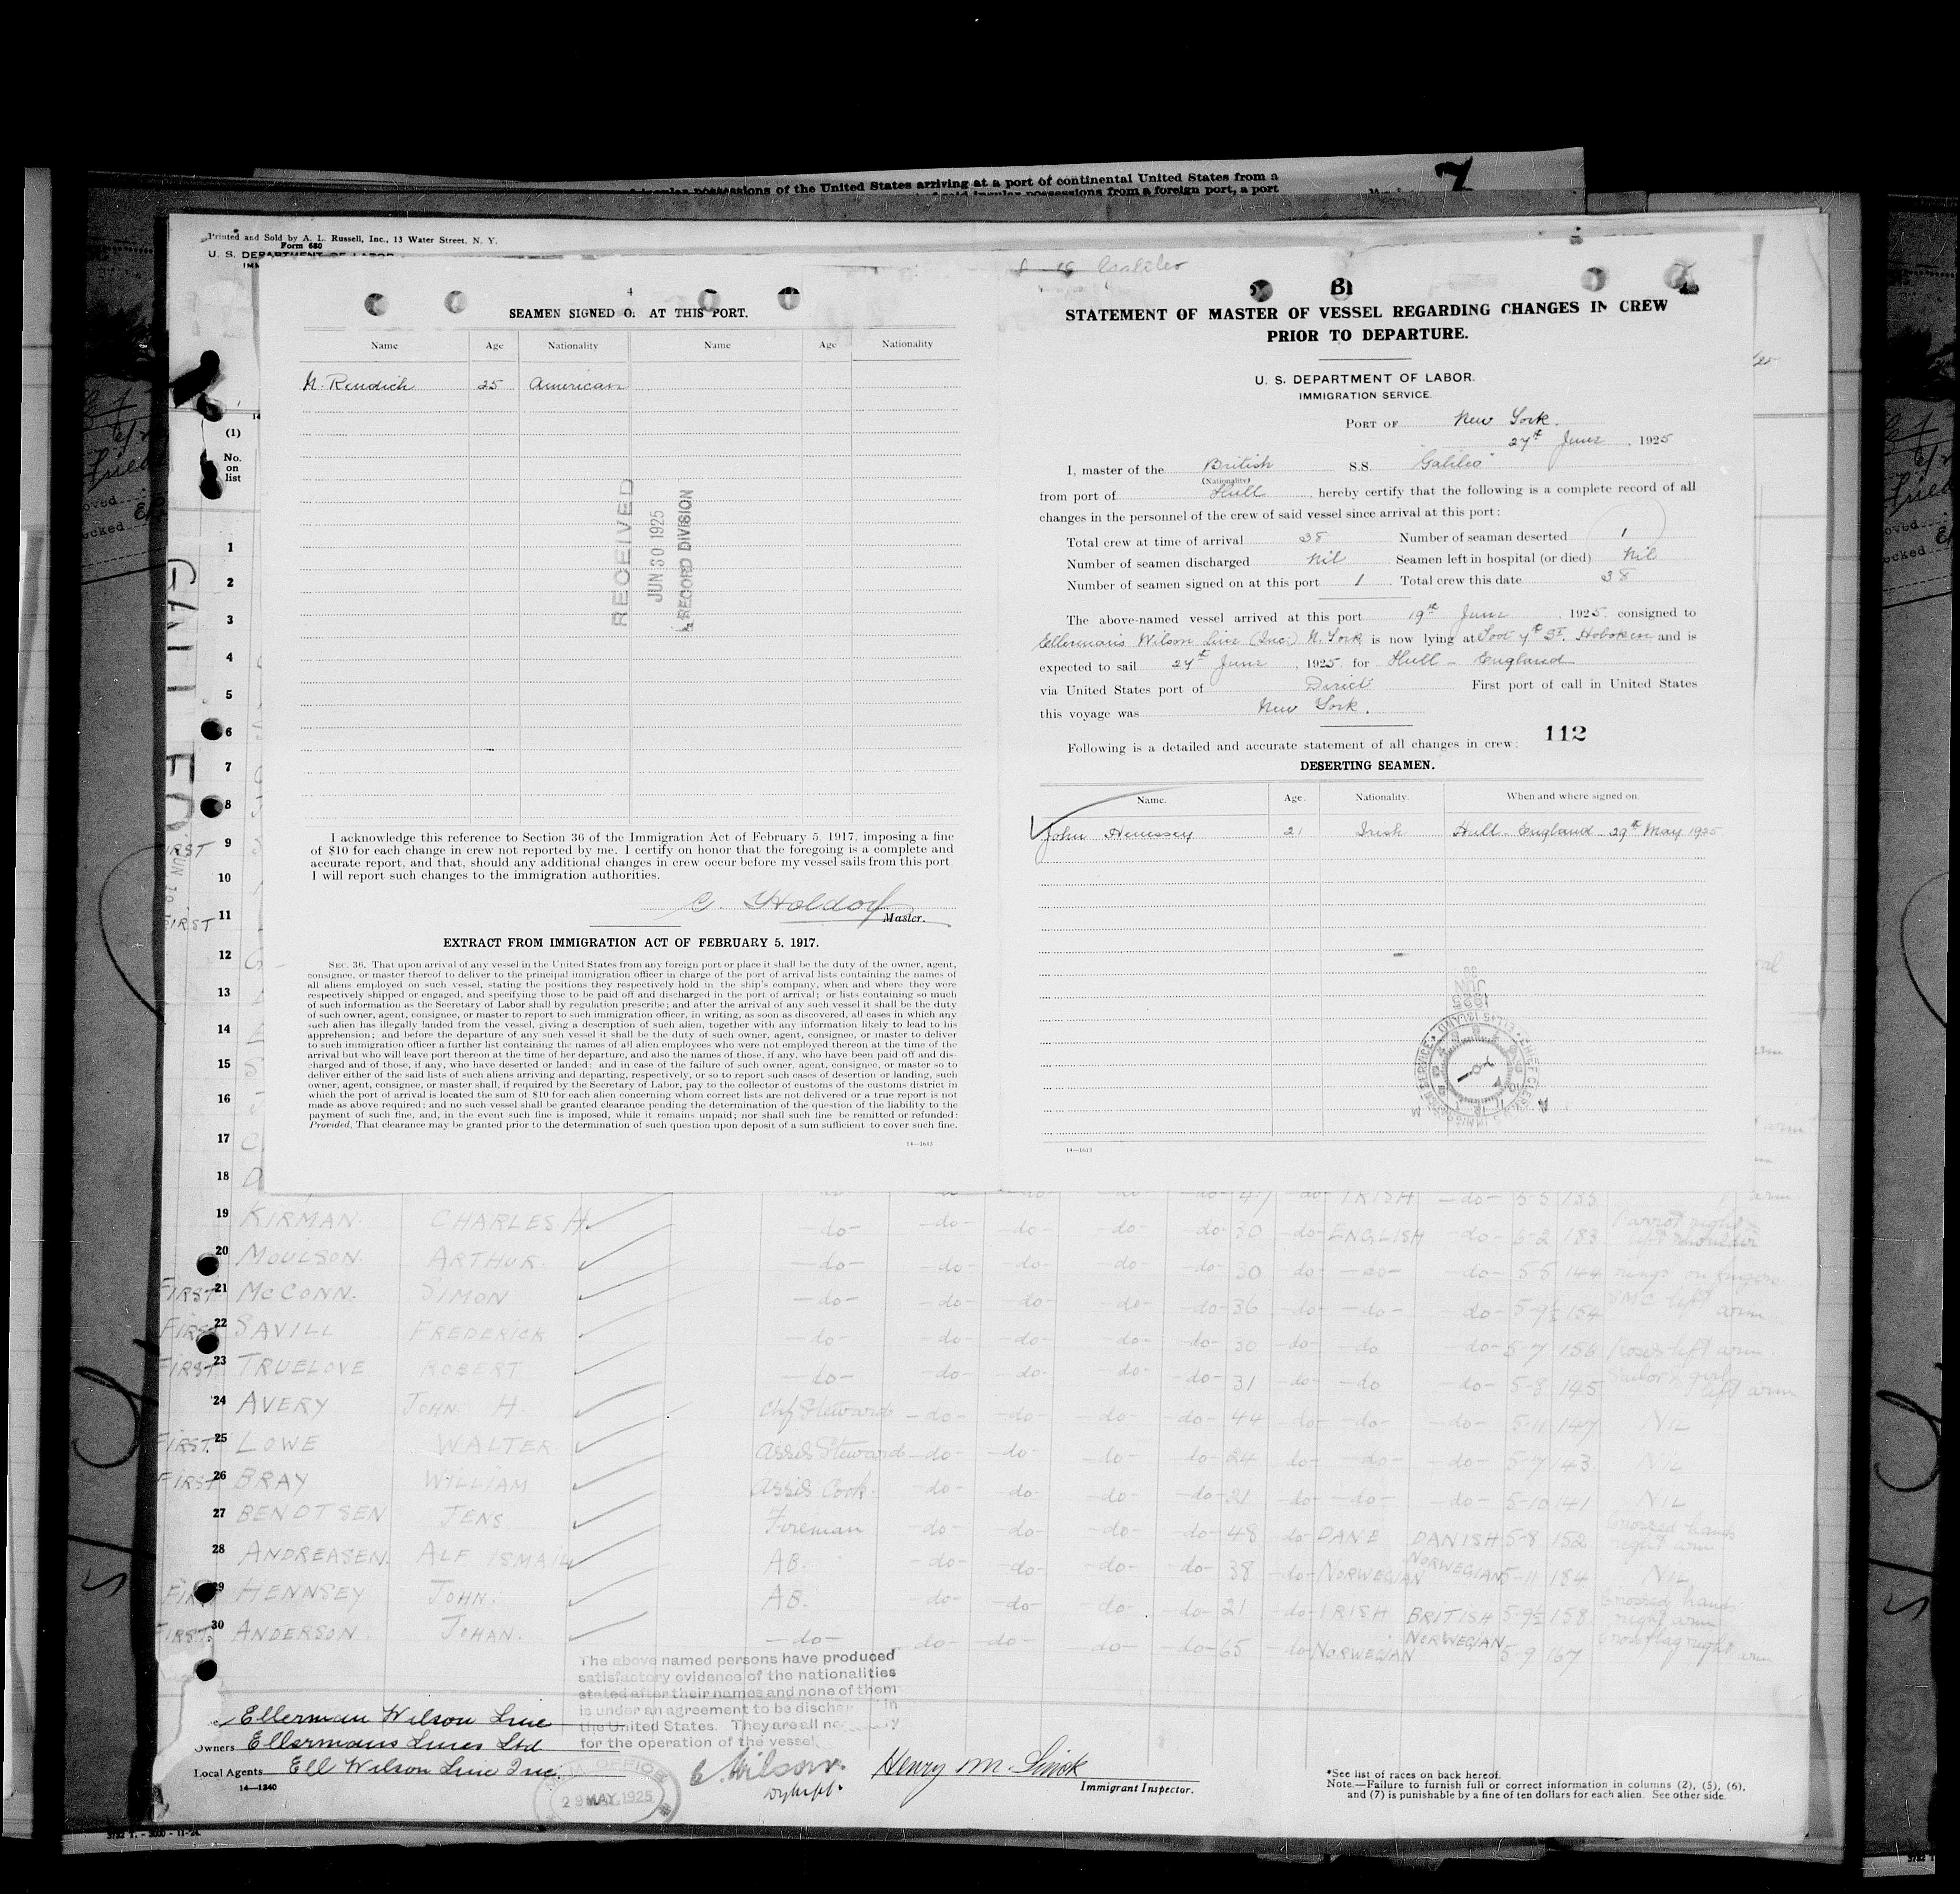 insular possessions of the United States arriving at a port of continental United States from a
insular possessions from a foreign port, a port
7
Printed and Sold by A. L. Russell, Inc., 13 Water Street, N. Y.
Form 680
U. S. DEPARTMENT OF LABOR
Galileo
4
SEAMEN SIGNED O AT THIS PORT.
Name Age Nationality Name Age Nationality
N. Rendich 25 American
RECEIVED
JUN 30 1925
RECORD DIVISION
I acknowledge this reference to Section 36 of the Immigration Act of February 5, 1917, imposing a fine
of $10 for each change in crew not reported by me. I certify on honor that the foregoing is a complete and
accurate report, and that, should any additional changes in crew occur before my vessel sails from this port
I will report such changes to the immigration authorities.
C. Holdorf
Master.
EXTRACT FROM IMMIGRATION ACT OF FEBRUARY 5, 1917.
SEC. 36. That upon arrival of any vessel in the United States from any foreign port or place it shall be the duty of the owner, agent,
consignee, or master thereof to deliver to the principal immigration officer in charge of the port of arrival lists containing the names of
all aliens employed on such vessel, stating the positions they respectively hold in the ship's company, when and where they were
respectively shipped or engaged, and specifying those to be paid off and discharged in the port of arrival; or lists containing so much
of such information as the Secretary of Labor shall by regulation prescribe; and after the arrival of any such vessel it shall be the duty
of such owner, agent, consignee, or master to report to such immigration officer, in writing, as soon as discovered, all cases in which any
such alien has illegally landed from the vessel, giving a description of such alien, together with any information likely to lead to his
apprehension; and before the departure of any such vessel it shall be the duty of such owner, agent, consignee, or master to deliver
to such immigration officer a further list containing the names of all alien employees who were not employed thereon at the time of the
arrival but who will leave port thereon at the time of her departure, and also the names of those, if any, who have been paid off and dis-
charged and of those, if any, who have deserted or landed; and in case of the failure of such owner, agent, consignee, or master so to
deliver either of the said lists of such aliens arriving and departing, respectively, or so to report such cases of desertion or landing, such
owner, agent, consignee, or master shall, if required by the Secretary of Labor, pay to the collector of customs of the customs district in
which the port of arrival is located the sum of $10 for each alien concerning whom correct lists are not delivered or a true report is not
made as above required; and no such vessel shall be granted clearance pending the determination of the question of the liability to the
payment of such fine, and, in the event such fine is imposed, while it remains unpaid; nor shall such fine be remitted or refunded:
Provided, That clearance may be granted prior to the determination of such question upon deposit of a sum sufficient to cover such fine.
14—1613
B1
STATEMENT OF MASTER OF VESSEL REGARDING CHANGES IN CREW
PRIOR TO DEPARTURE.
U. S. DEPARTMENT OF LABOR.
IMMIGRATION SERVICE.
PORT OF New York.
27th June, 1925
I, master of the British S.S. Galileo
(Nationality)
from port of Hull, hereby certify that the following is a complete record of all
changes in the personnel of the crew of said vessel since arrival at this port:
Total crew at time of arrival 38 Number of seaman deserted 1
Number of seamen discharged Nil Seamen left in hospital (or died) Nil
Number of seamen signed on at this port 1. Total crew this date 38
The above-named vessel arrived at this port 19th June, 1925 consigned to
Ellermans Wilson Line (Inc.) N. York is now lying at Foot 7th St. Hoboken and is
expected to sail 27th June, 1925 for Hull - England
via United States port of Direct First port of call in United States
this voyage was New York.
112
Following is a detailed and accurate statement of all changes in crew:
DESERTING SEAMEN.
Name. Age. Nationality. When and where signed on.
John Hennssey 21 Irish Hull - England 29th May 1925
14—1613
(1)
No.
on
list
GALILEO
1
2
3
4
5
6
7
8
FIRST 9
10
FIRST 11
12
13
14
15
16
17
18 -do- 47 -do- IRISH -do- 5-5 155 arm
19 KIRMAN CHARLES H. -do- -do- -do- -do- -do- 30 -do- ENGLISH -do- 6-2 183 Parrot right left shoulder
20 MOULSON. ARTHUR. -do- -do- -do- -do- -do- 30 -do- -do- -do- 5-5 144 rings on fingers
FIRST 21 McCONN. SIMON -do- -do- -do- -do- -do- 36 -do- -do- -do- 5-9½ 154 SMC left arm
FIRST 22 SAVILL FREDERICK -do- -do- -do- -do- -do- 30 -do- -do -do- 5-7 156 Roses left arm.
FIRST 23 TRUELOVE ROBERT -do- -do- -do- -do- -do- 31 -do- -do -do- 5-8 145 Sailor & girl left arm
24 AVERY JOHN H. Chf Steward -do- -do- -do- -do- 44 -do- -do- -do- 5-11 147 NIL
FIRST. 25 LOWE WALTER Assis Steward -do- -do- -do- -do- 24 do- -do- -do- 5-7 143 NIL
FIRST 26 BRAY WILLIAM Assis Cook. -do- -do- -do- -do- 21 -do- -do- -do- 5-10 141 NIL
27 BENDTSEN JENS Fireman -do- -do- -do- -do- 48 -do DANE DANISH 5-8 152 Crossed hands right arm
28 ANDREASEN. ALF ISMAIL AB. -do- -do- -do- -do- 38 -do- NORWEGIAN NORWEGIAN 5-11 184 NIL
FIRST 29 HENNSEY JOHN. AB. -do- -do- -do- -do- 21 -do- IRISH BRITISH 5-9½ 158 Crossed hands right arm
FIRST. 30 ANDERSON JOHAN. -do- -do- -do- -do- -do- 65 -do- NORWEGIAN NORWEGIAN 5-9 167 Cross flag right arm
The above named persons have produced
satisfactory evidence of the nationalities
stated after their names and none of them
is under an agreement to be discha in
the United States. They are all
for the operation of the vessel
Ellerman Wilson Line
Owners Ellermans Lines Ltd
Local Agents Ell Wilson Line Inc.
14—1240
OFFICE
29 MAY 1925
C. Wilson.
Henry M. Sinck
Immigrant Inspector.
*See list of races on back hereof.
Note.—Failure to furnish full or correct information in columns (2), (5), (6),
and (7) is punishable by a fine of ten dollars for each alien. See other side.